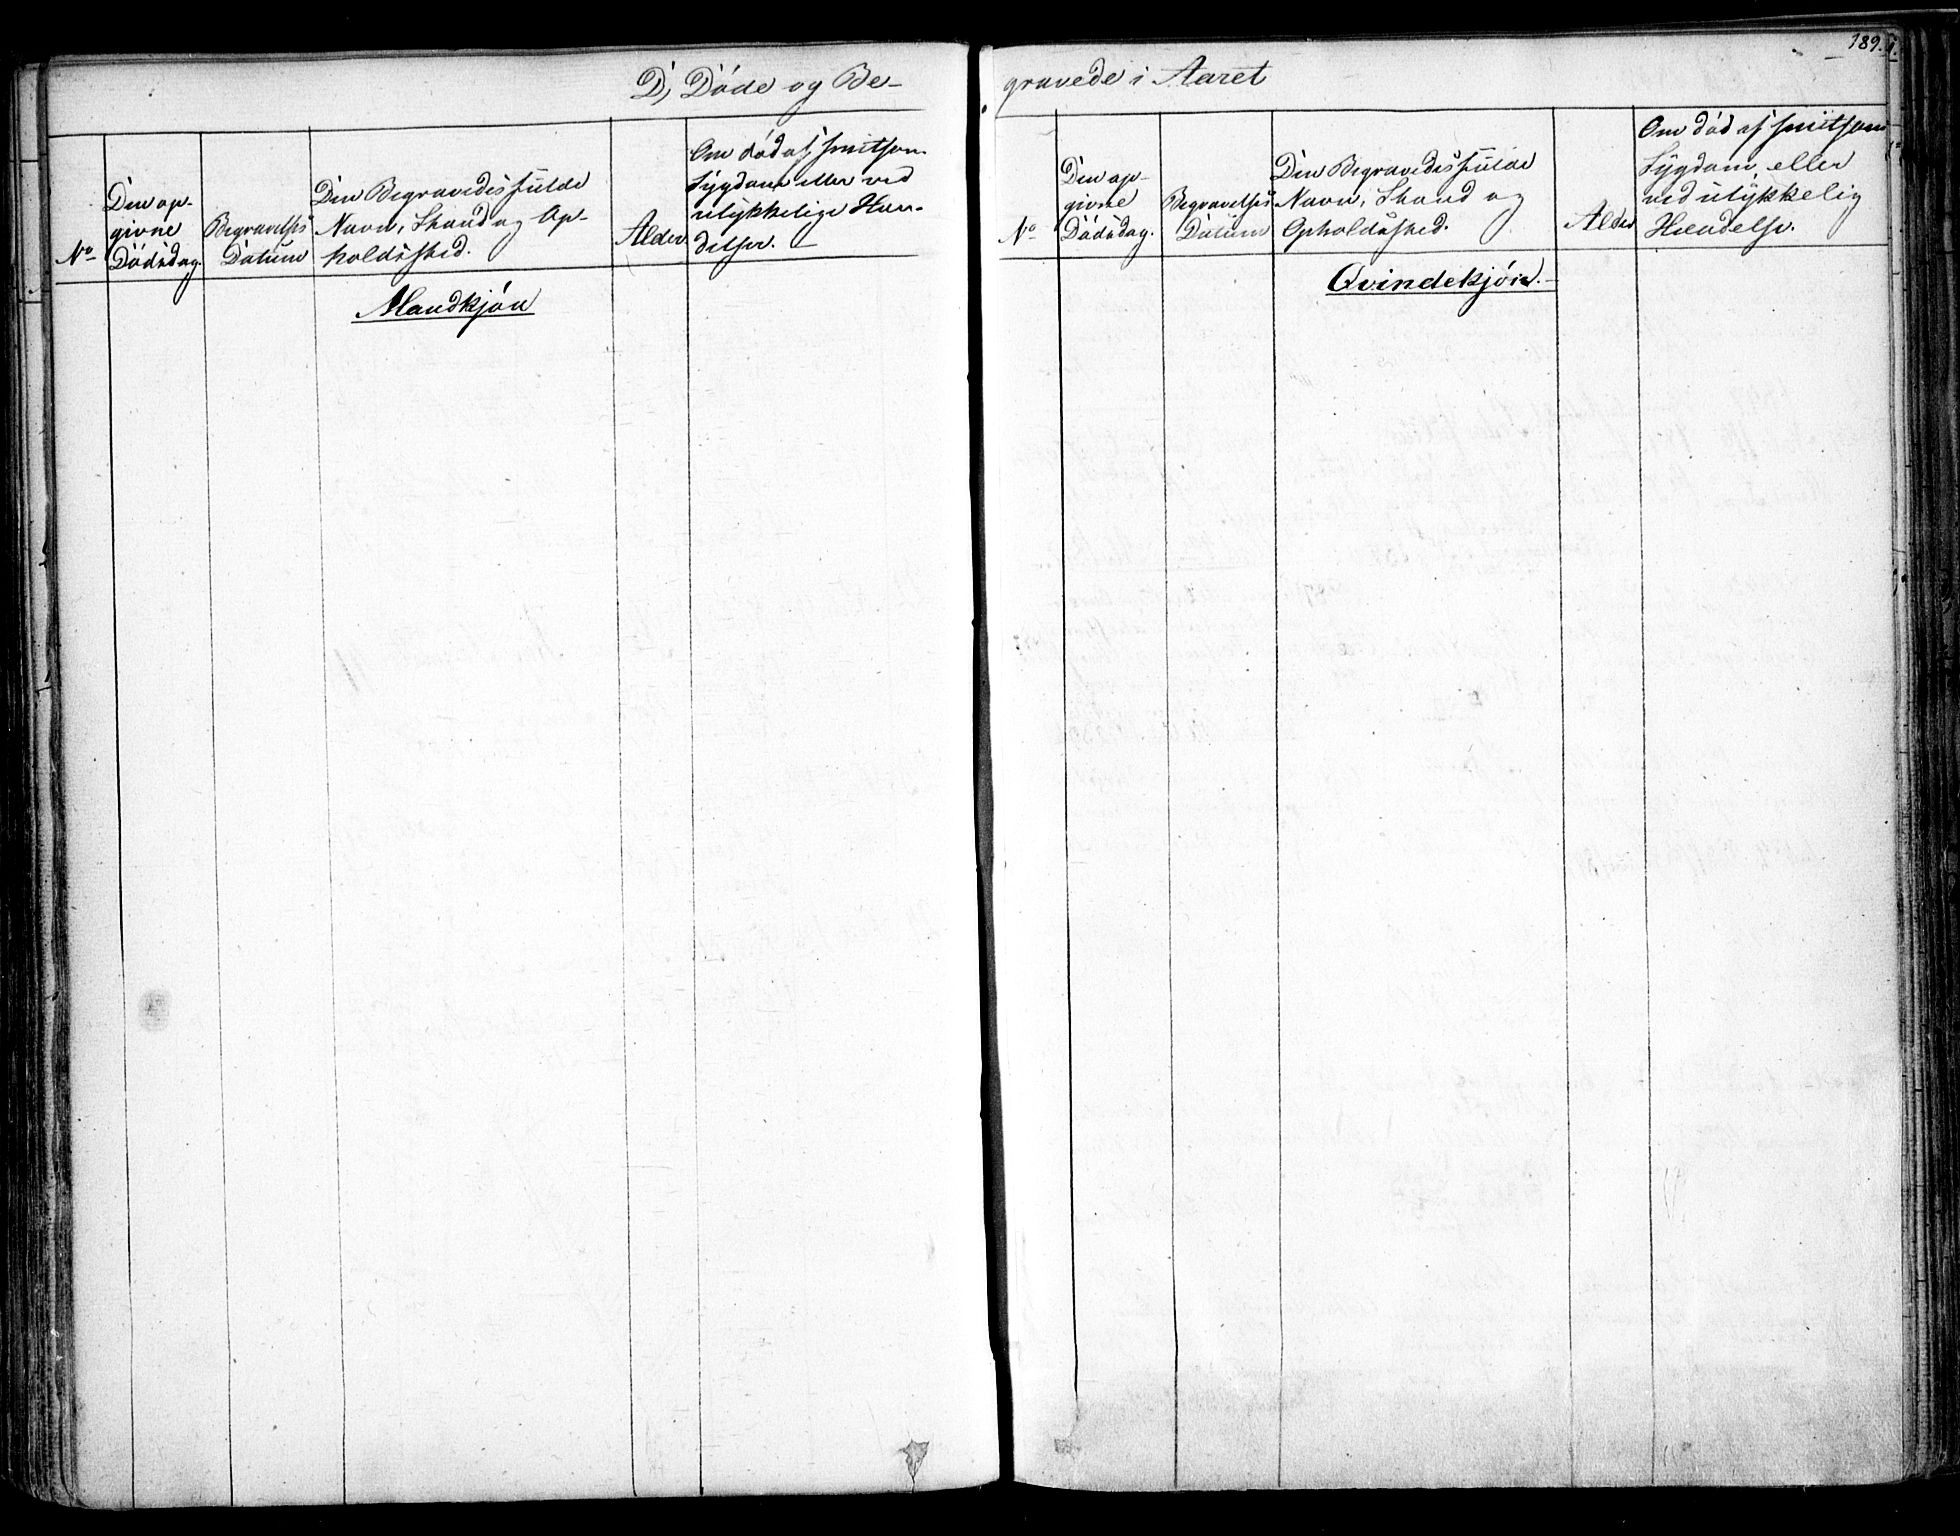 189.
D, Døde og Be-
gravede i Aaret
No
Den op-
givne
Dödsdag.
Begravelses
Datum
Den Begravedes fulde
Navn, Stand og Op-
holdssted.
Alder
Om död af smitsom
Sygdom eller ved
ulykkelige Hæn-
delser.
Mandkjön
No
Den op-
givne
Dödsdag.
Begravelses
Datum
Den Begravedes fulde
Navn, Stand og
Opholdssted.
Alder
Om död af smitsom
Sygdom, eller
ved ulykkelig
Hændelse.
Qvindekjön.